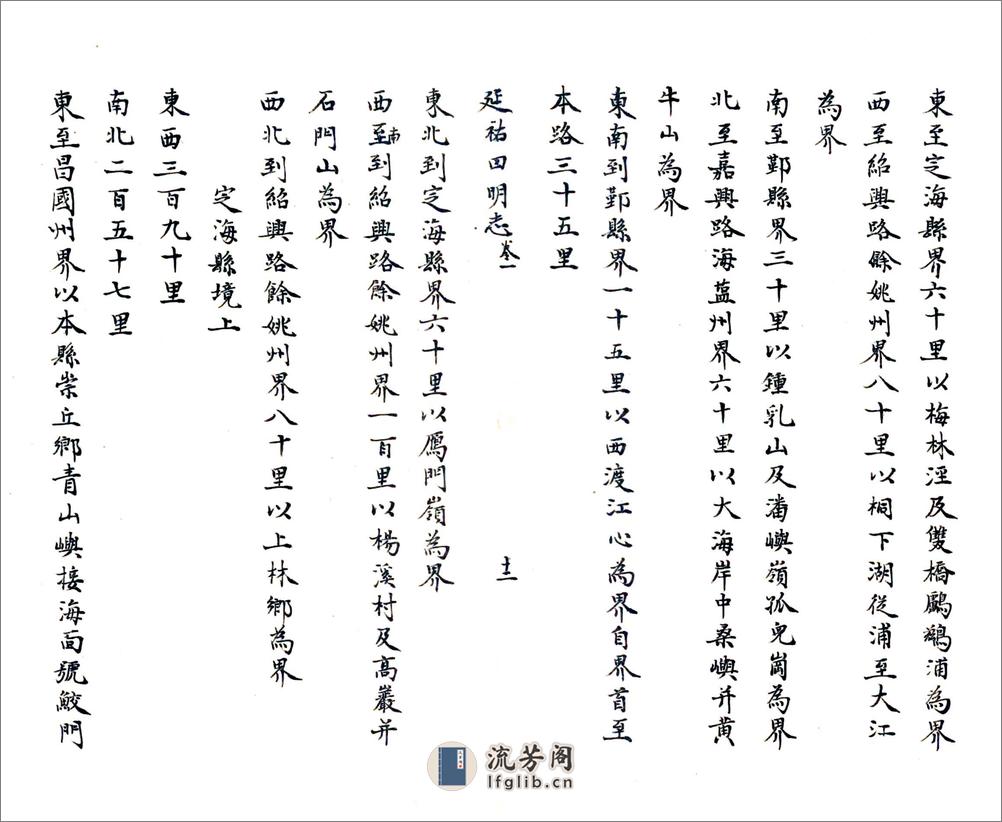 東至定海縣界六十里以梅林涇及雙橋鸕鷀浦為界
西至紹興路餘姚州界八十里以桐下湖從浦至大江
為界
南至鄞縣界三十里以鍾乳山及潘嶼嶺孤兒崗為界
北至嘉興路海盐州界六十里以大海岸中桑嶼并黄
牛山為界
東南到鄞縣界一十五里以西渡江心為界自界首至
本路三十五里
延祐四明志 卷一
十二
東北到定海縣界六十里以鴈門嶺為界
西至南到紹興路餘姚州界一百里以楊溪村及高巖并
石門山為界
西北到紹興路餘姚州界八十里以上林鄉為界
定海縣境上
東西三百九十里
南北二百五十七里
東至昌國州界以本縣崇丘鄉青山嶼接海面號鮫門
流芳阁
lfglib.cn